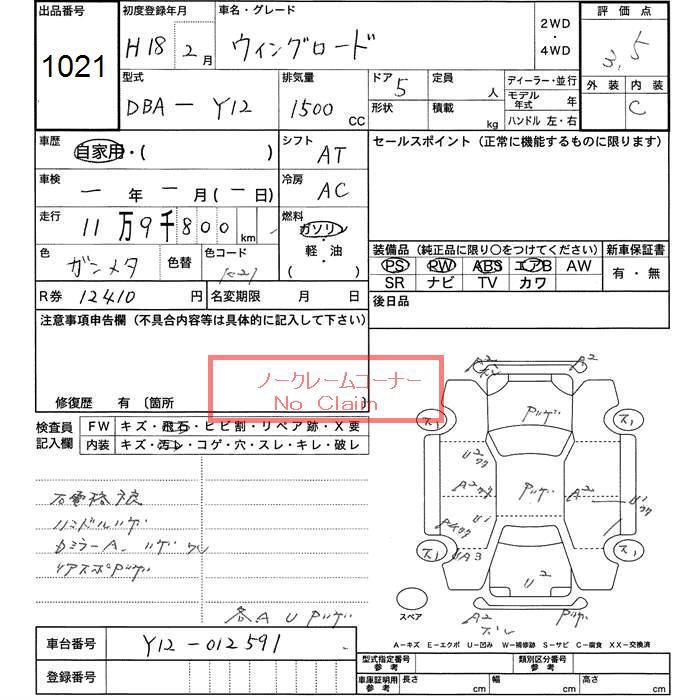 出品番号 初度登録年月 車名・グレード 2WD・4WD 評価点
1021 H18 2月 ウィングロード 3.5
外装 内装
C
型式 排気量 ドア 5 定員 人 ディーラー・並行
DBA－Y12 1500 CC 形状 積載 kg モデル年式 年
ハンドル 左・右
車歴 自家用・( ) シフト AT セールスポイント (正常に機能するものに限ります)
車検 ー年ー月(ー日) 冷房 AC
走行 11万9千800km 燃料 ガソリン・軽油 ( )
色 ガンメタ 色替 色コード
装備品 (純正品に限り○をつけてください) 新車保証書
PS PW ABS エアB AW 有・無
SR ナビ TV カワ
R券 12410円 名変期限 月 日 後日品
注意事項申告欄 (不具合内容等は具体的に記入して下さい)
ノークレームコーナー
No Claim
修復歴 有 〔箇所
検査員記入欄 FW キズ・飛石・ヒビ割・リペア跡・X要
内装 キズ・汚レ・コゲ・穴・スレ・キレ・破レ
ハンドルハゲ
リアスポPハゲ
各A U Pハゲ
A2
Pハゲ
ス1 ス1
U2
A2
Pハゲ
A2
U1
U1
ス1 ス1
UA3
U2
スペア
A2
Pハゲ
A－キズ E－エクボ U－凹み W－補修跡 S－サビ C－腐食 XX－交換済
車台番号 Y12-012591
登録番号
型式指定番号参考 類別区分番号参考
車庫証明用参考 長さ cm 幅 cm 高さ cm